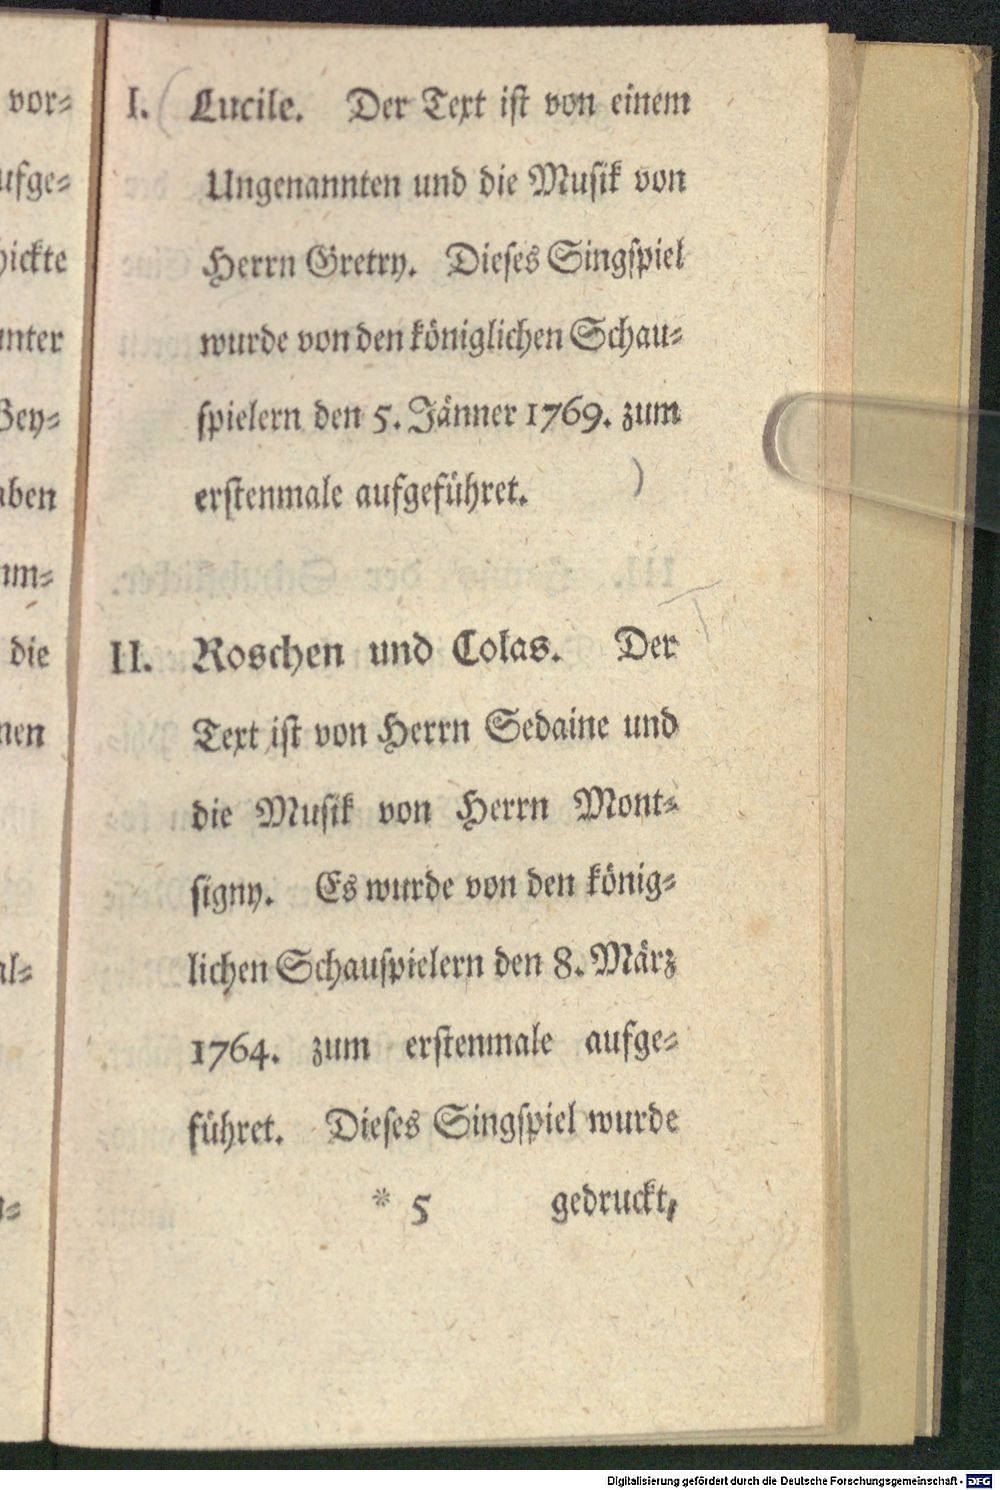 vor-
ufge-
hickte
unter
Bey-
aben
mm-
die
nen
al-
I. Lucile. Der Text ist von einem
Ungenannten und die Musik von
Herrn Gretry. Dieses Singspiel
wurde von den königlichen Schau-
spielern den 5. Jänner 1769. zum
erstenmale aufgeführet.
II. Roschen und Colas. Der
Text ist von Herrn Sedaine und
die Musik von Herrn Mont-
signy. Es wurde von den könig-
lichen Schauspielern den 8. März
1764. zum erstenmale aufge-
führet. Dieses Singspiel wurde
* 5 gedruckt,
Digitalisierung gefördert durch die Deutsche Forschungsgemeinschaft - DFG